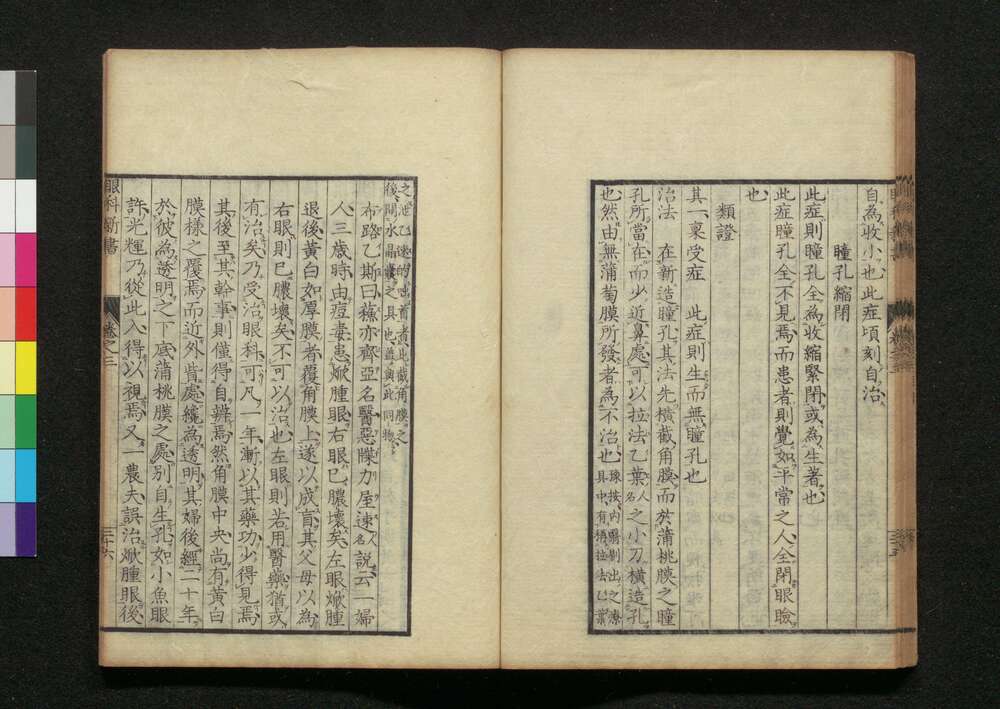 自為收小也此症頃刻自治
瞳孔縮閉
此症則瞳孔全為收縮緊閉或為生者也
此症瞳孔全不見焉而患者則覺如平常之人全閉眼瞼
也
類證
其一稟受症 此症則生而無瞳孔也
治法 在新造瞳孔其法先橫截角膜而於蒲桃膜之瞳
孔所當在而少近鼻處可以拉法乙葉人名之小刀橫造孔
也然由無蒲萄膜所發者為不治也 按內翳出之療
具中有拉法乙葉
之 乙 的 者此截角膜之
後開水晶囊之具也蓋與此同物
布路乙斯曰蕪亦齊亞名醫惡朦力屋速人名說云一婦
人三歲時由痘毒患焮腫眼右眼已膿壞矣左眼焮腫
退後黃白如厚膜者覆角膜上遂以成盲其父母以為
右眼則已膿壞矣不可以治也左眼則若用醫藥猶或
有治矣乃受治眼科可凡一年漸以其藥功少得見焉
其後至其幹事則僅得自辨焉然角膜中央尚有黃白
膜樣之覆焉而近外眥處纔為透明其婦後經二十年
於彼為透明之下底蒲桃膜之處別自生孔如小魚眼
許光輝乃從此入得以視焉又一農夫誤治焮腫眼後
眼科新書
卷之三
三十六